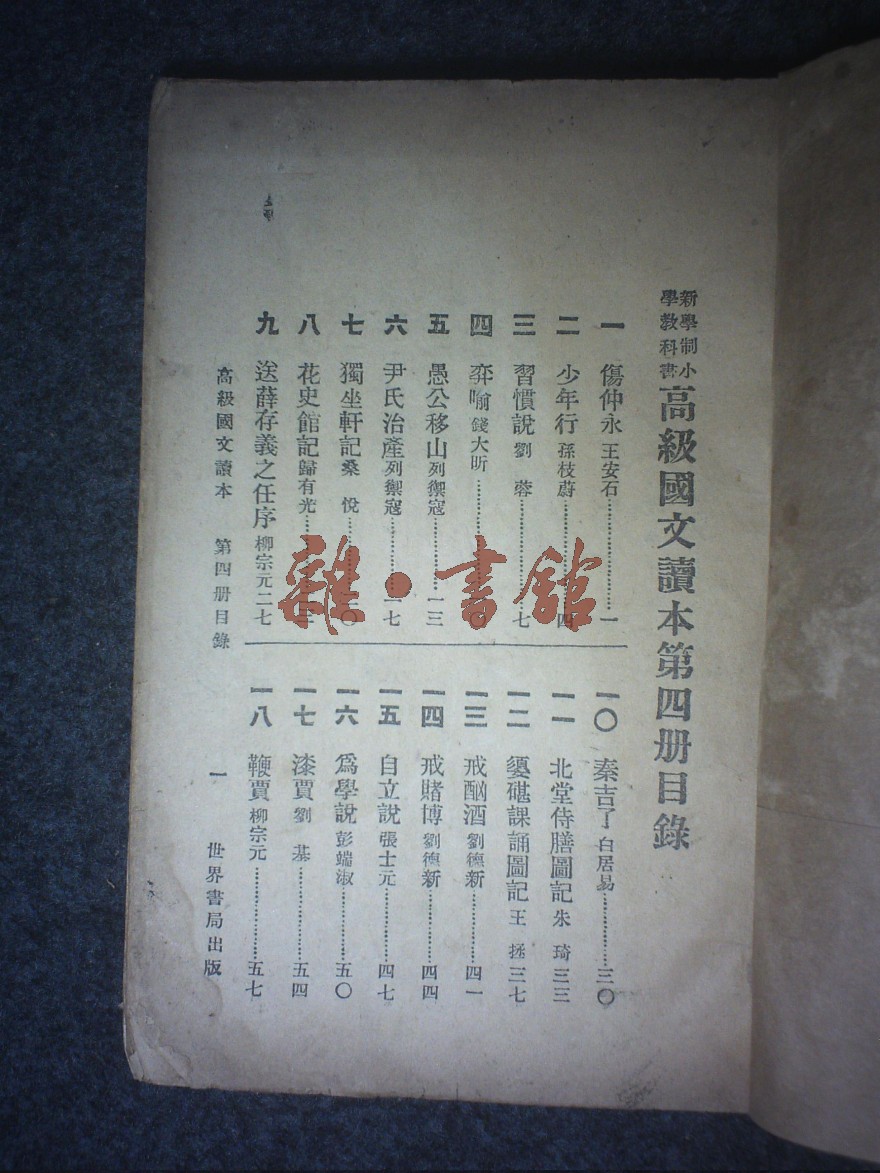 新學制小學教科書
高級國文讀本第四册目錄
一 傷仲永 王安石 一
二 少年行 孫枝蔚 四
三 習慣說 劉蓉 七
四 弈喻 錢大昕
五 愚公移山 列禦寇 一三
六 尹氏治產 列禦寇 一七
七 獨坐軒記 桑悅
八 花史館記 歸有光
九 送薛存義之任序 柳宗元 二七
一〇 秦吉了 白居易 三〇
一一 北堂侍膳圖記 朱琦 三三
一二 課誦圖記 王拯 三七
一三 戒酗酒 劉德新 四一
一四 戒賭博 劉德新 四四
一五 自立說 張士元 四七
一六 爲學說 彭端淑 五〇
一七 漆賈 劉基 五四
一八 鞭賈 柳宗元 五七
高級國文讀本 第四册目錄
一
世界書局出版
雜·書館